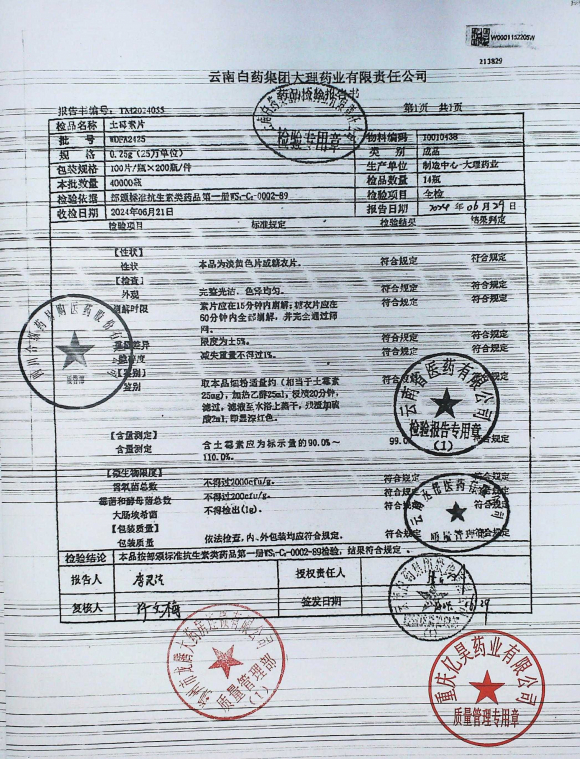 W0001152205W
213829
云南白药集团大理药业有限责任公司
药品检验报告书
报告书编号：YM2024055 第1页 共1页
检品名称 土霉素片
批 号 WDFA2425 物料编码 10010438
规 格 0.25g（25万单位） 类 别 成品
包装规格 100片/瓶×200瓶/件 单 位 制造中心-大理药业
本批数量 40000瓶 检品数量 14瓶
检验依据 部颁标准抗生素类药品第一册WS₁-C₂-0002-89 检验项目 全检
收检日期 2024年06月21日 报告日期 2024年06月29日
检验项目 标准规定 检验结果 结果判定
【性状】
性状 本品为淡黄色片或糖衣片。 符合规定 符合规定
【检查】
外观 完整光洁，色泽均匀。 符合规定 符合规定
崩解时限 素片应在15分钟内崩解；糖衣片应在 符合规定 符合规定
60分钟内全部崩解，并完全通过筛
网。
重量差异 限度为±5%。 符合规定 符合规定
减失重量不得过1%。 符合规定
【鉴别】
鉴别 取本品细粉适量约（相当于土霉素 符合规定
25mg），加热乙醇25ml，浸渍20分钟，
滤过，滤液至水浴上蒸干，残渣加硫
酸2ml，即显深红色。
【含量测定】
含量测定 含土霉素应为标示量的90.0%～ 99.0
110.0%。
【微生物限度】
需氧菌总数 不得过2000cfu/g。 符合规定 符合规定
霉菌和酵母菌总数 不得过200cfu/g。 符合规定 符合规定
大肠埃希菌 不得检出(1g)。 符合规定
【包装质量】
包装质量 依法检查，内、外包装均应符合规定。 符合规定
检验结论 本品按部颁标准抗生素类药品第一册WS₁-C₂-0002-89检验，结果符合规定。
报告人 授权责任人
复核人 签发日期
检验专用章
质管部
云南省医药有限公司
检验报告专用章
(1)
质量管理
质量管理部
(1)
重庆亿昊药业有限公司
质量管理专用章